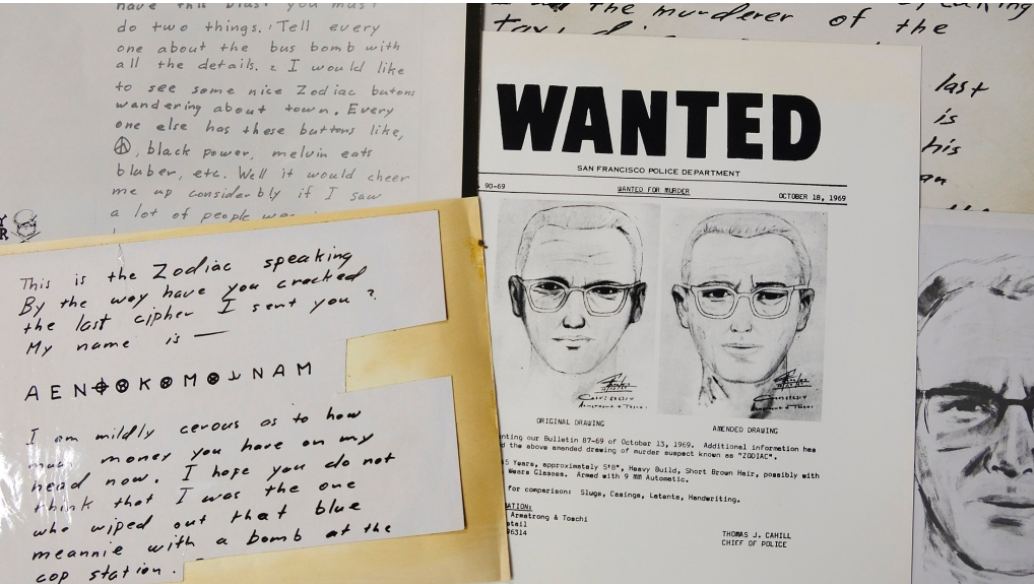 have this you must
do two things. Tell every
one about the bus bomb with
all the details. 2 I would like
to see some nice Zodiac butons
wandering about town. Every
one else has these buttons like,
☮, black power, melvin eats
bluber, etc. Well it would cheer
me up considerbly if I saw
a lot of people
This is the Zodiac speaking
By the way have you cracked
the last cipher I sent you ?
My name is —
A E N ⌖ ⊗ K ⊗ M ⊗ ⅃ N A M
I am mildly cerous as to how
much money you have on my
head now. I hope you do not
think that I was the one
who wiped out that blue
meannie with a bomb at the
cop station.
the murderer of the
last
is
his
WANTED
SAN FRANCISCO POLICE DEPARTMENT
90-69 WANTED FOR MURDER OCTOBER 18, 1969
ORIGINAL DRAWING AMENDED DRAWING
nting our Bulletin 87-69 of October 13, 1969. Additional information has
d the above amended drawing of murder suspect known as "ZODIAC".
5 Years, approximately 5'8", Heavy Build, Short Brown Hair, possibly with
Wears Glasses. Armed with 9 MM Automatic.
for comparison: Slugs, Casings, Latents, Handwriting.
ATION:
Armstrong & Toschi
etail
96314
THOMAS J. CAHILL
CHIEF OF POLICE